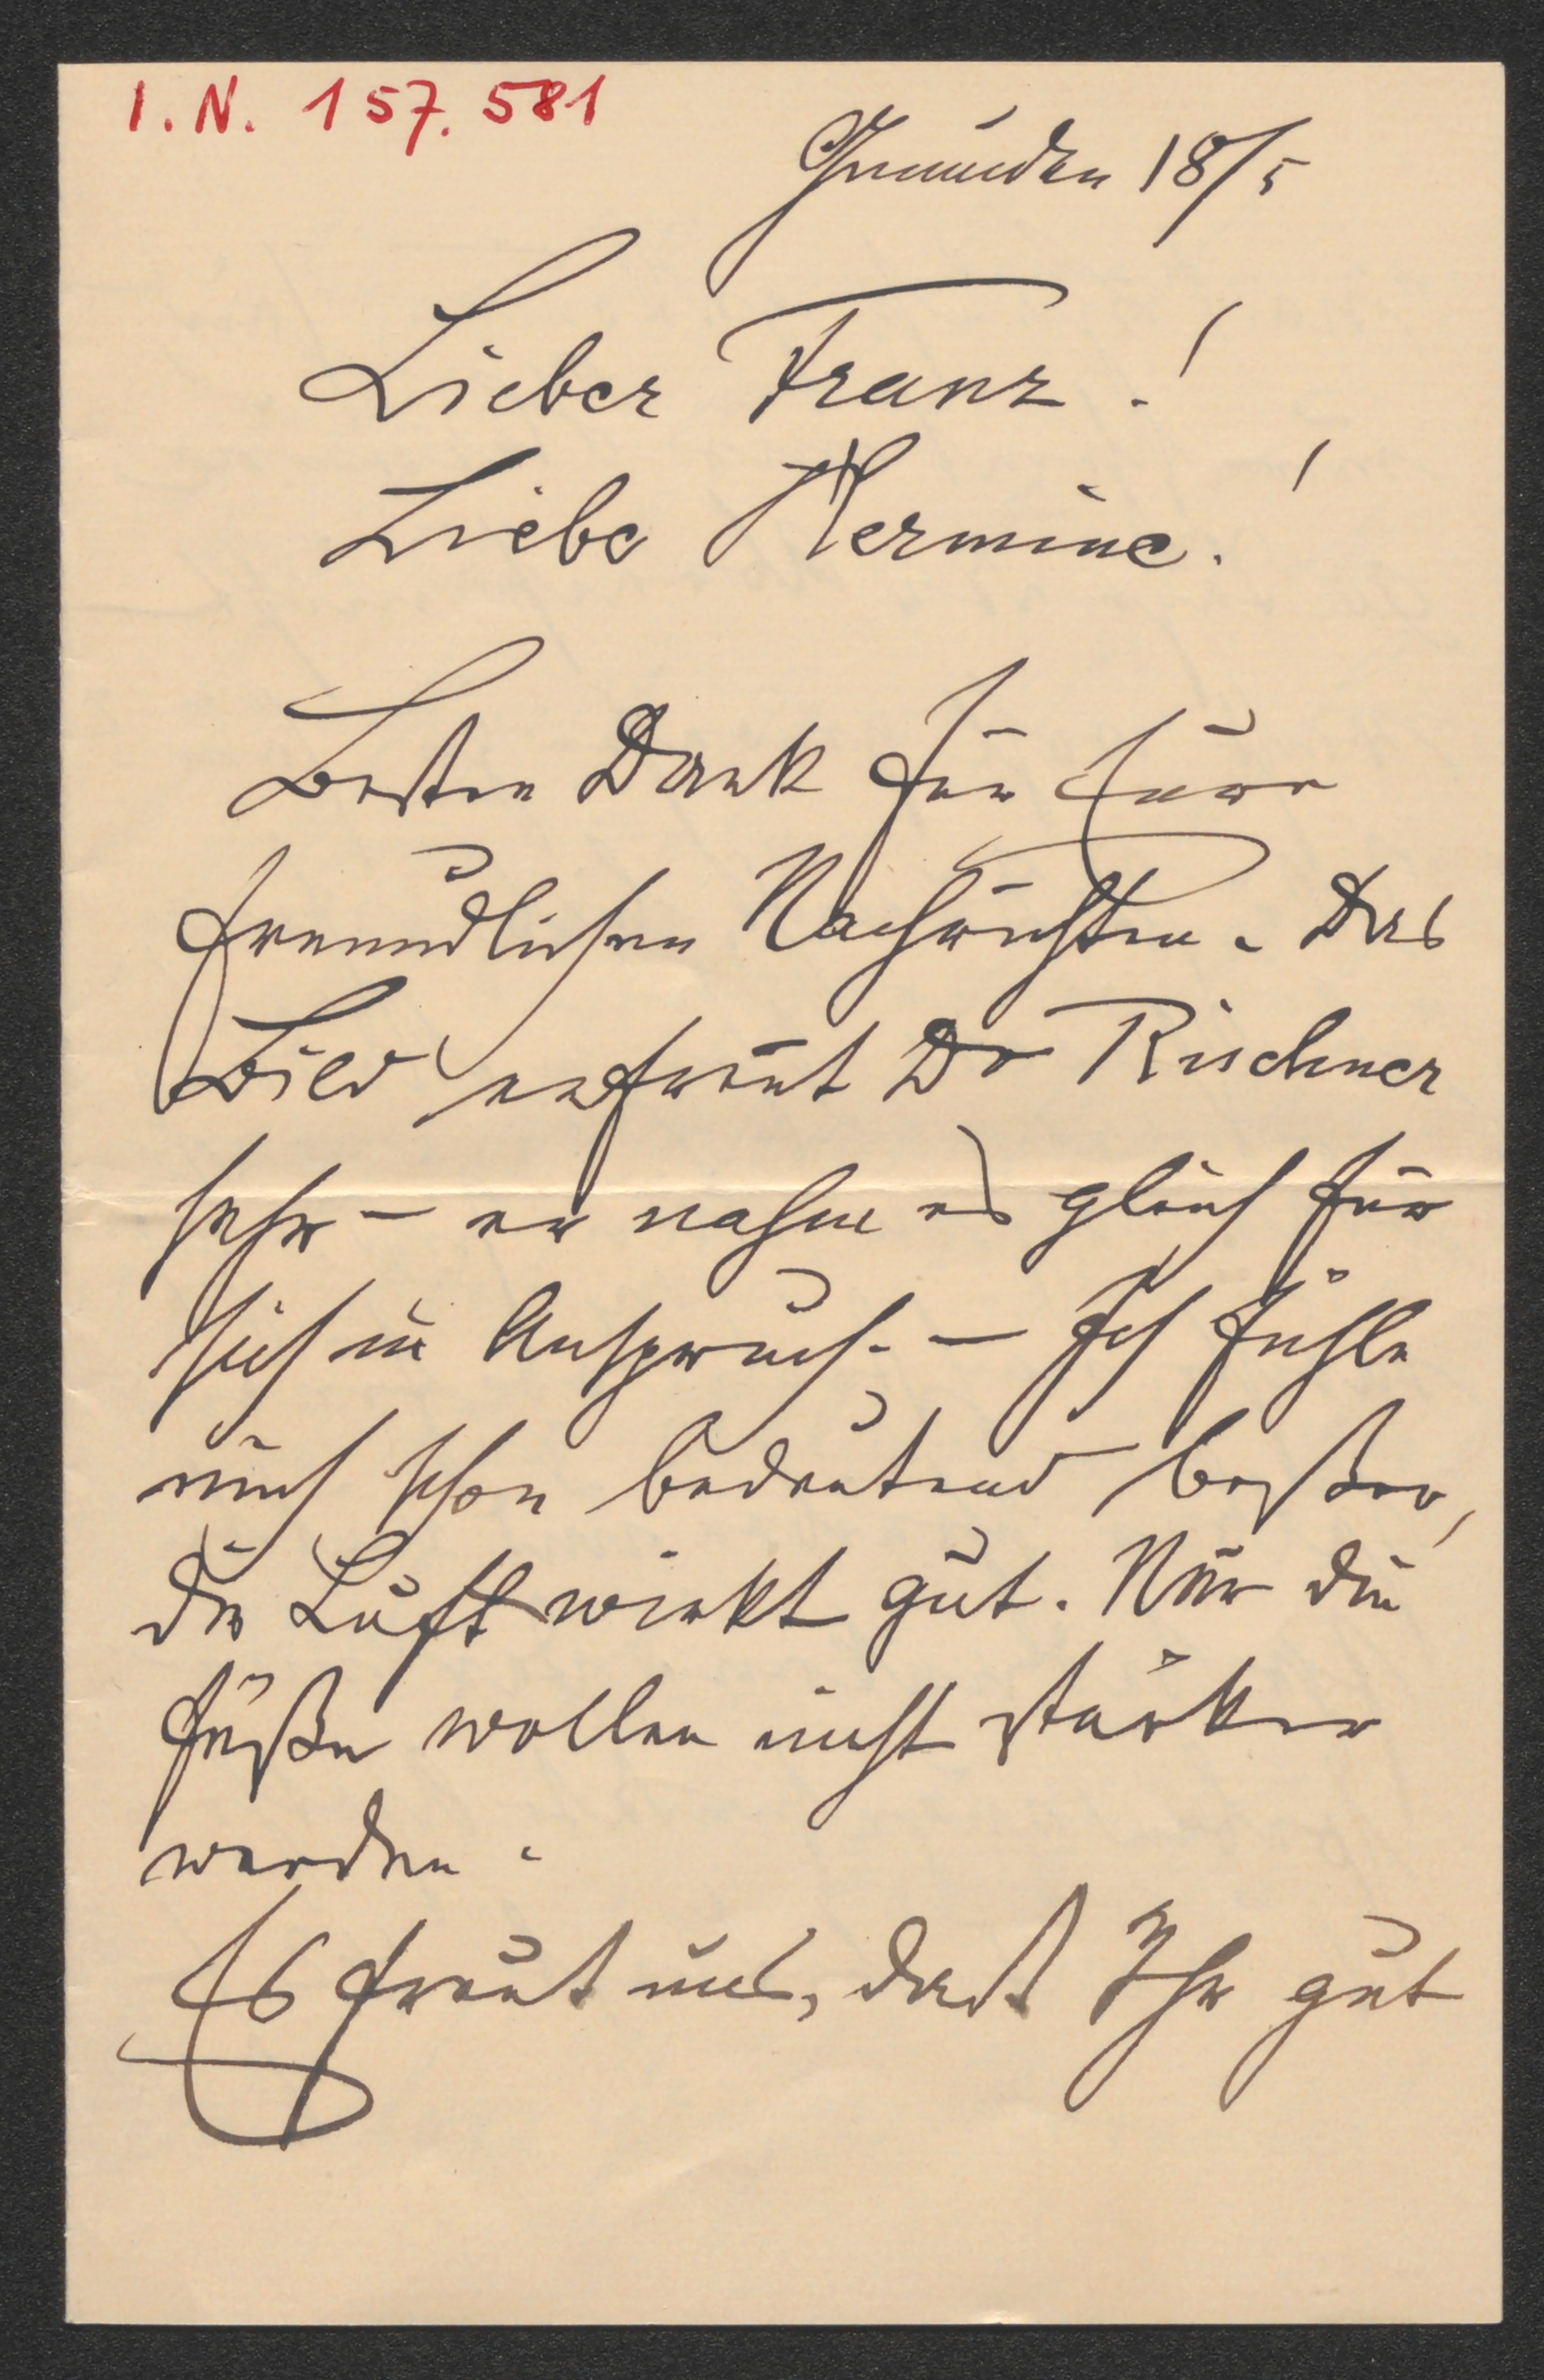 I. N. 157.581
Gmunden 18/5
Lieber Franz!
Liebe Hermine!
Besten Dank für Eure
freundlichen Nachrichten. Das
Bild erfreut Dr
sehr – er nahm es gleich für
sich in Anspruch. – Ich fühle
mich schon bedeutend beßer,
die Luft wirkt gut. Nur die
Füße wollen nicht stärker
werden.
Es freut uns, daß Ihr gut